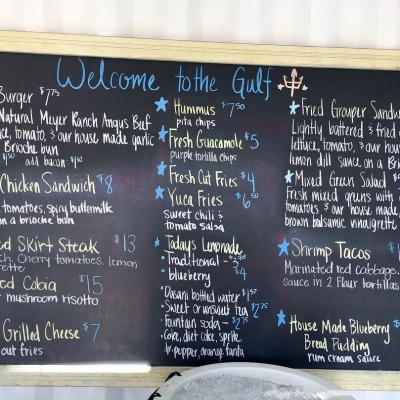 Welcome to the Gulf
Burger $7.75
Natural Meyer Ranch Angus Beef
tomato, & our house made garlic
Brioche bun
$1.50 add bacon: $1.50
Chicken Sandwich $8
tomatoes, spicy buttermilk
on a brioche bun
Skirt Steak $13
Cherry tomatoes, lemon
Cobia $15
mushroom risotto
Grilled Cheese $7
out fries
Hummus $7.50
pita chips
Fresh Guacamole $5
purple tortilla chips
Fresh Cut Fries $4
Yuca Fries $6.50
Sweet chili &
tomato salsa
Today's Lemonade
• Traditional -
• blueberry $4
• Dasani bottled water
• Sweet or unsweet tea $2.75
• Fountain soda - $2.75
Coke, diet coke, sprite,
dr. pepper, orange fanta
Fried Grouper
Lightly battered & fried
lettuce, tomato, & our
lemon dill sauce on a
Mixed Green Salad
Fresh mixed greens with
tomatoes & our house made
brown balsamic vinaigrette
Shrimp Tacos
Marinated red cabbage,
sauce in 2 flour tortillas
House Made Blueberry
Bread Pudding
rum cream sauce